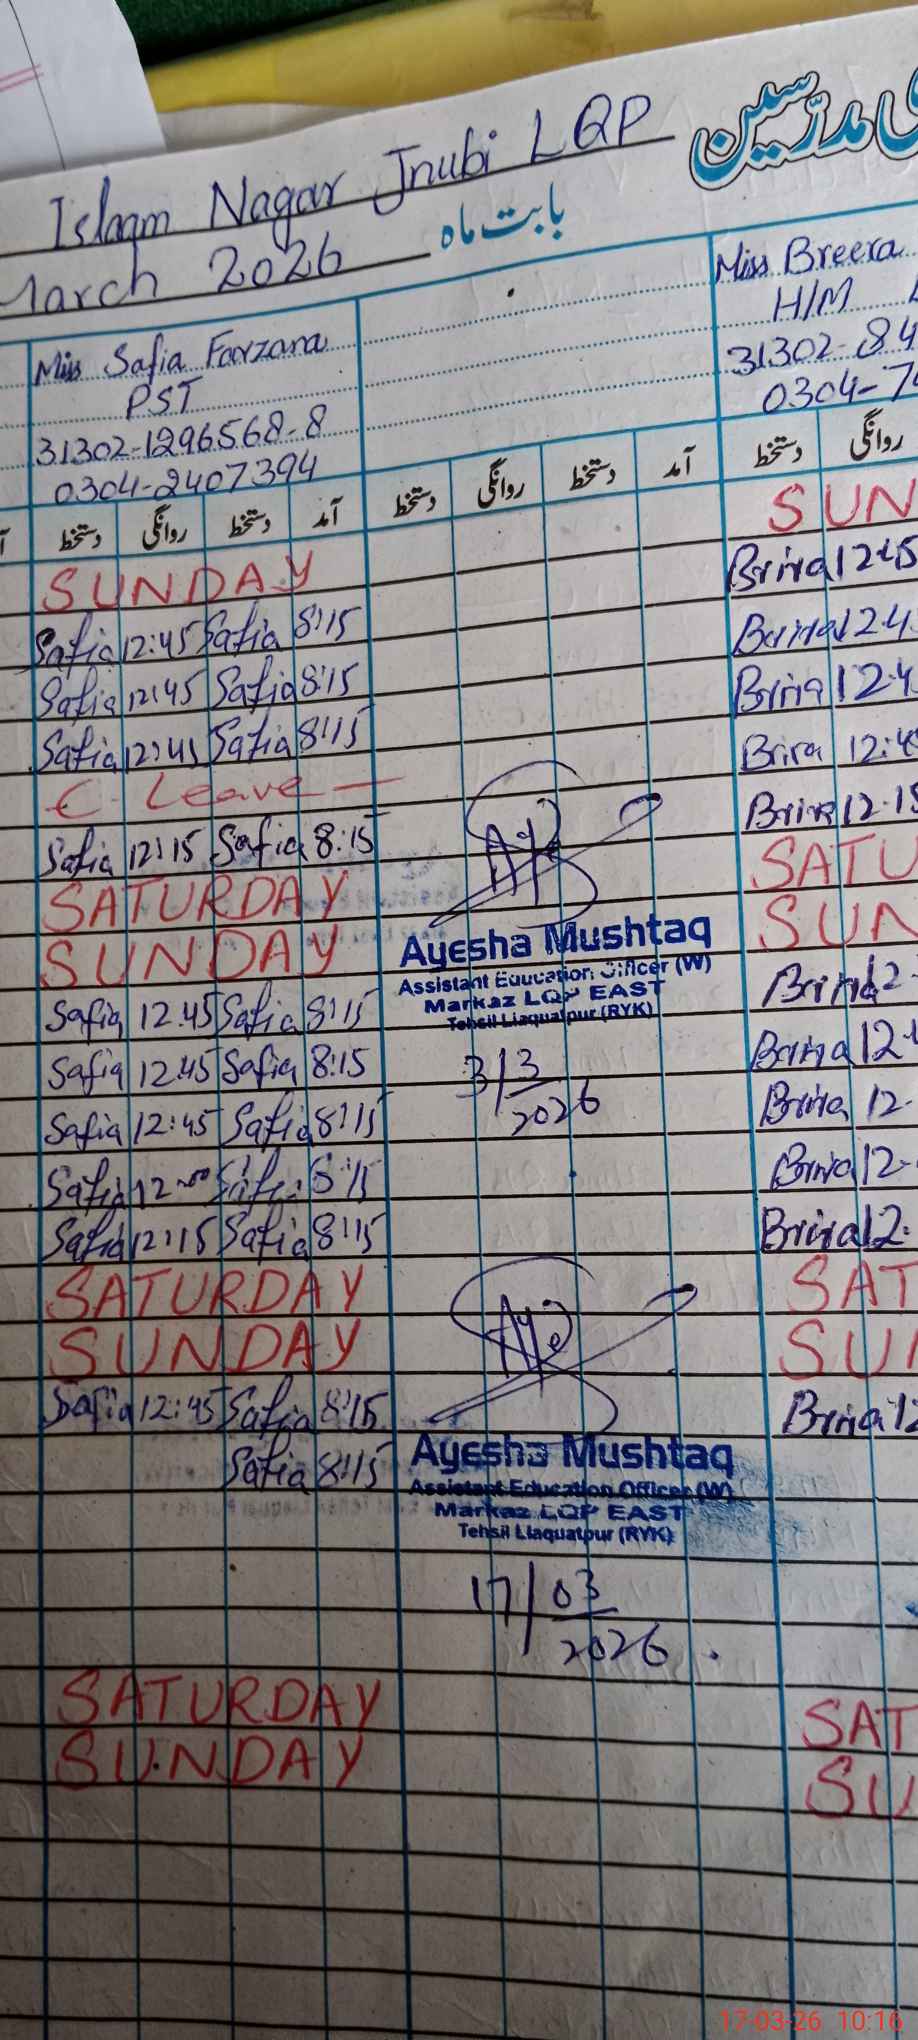 مدرّسین
Islaam Nagar Jnubi LQP
بابت ماہ
March 2026
Miss Safia Farzana
PST
31302-1296568-8
0304-2407394
Miss Breera
H/M
31302-84
0304-74
دستخط روانگی دستخط آمد دستخط روانگی دستخط آمد دستخط روانگی
SUNDAY SUN
Safia 12:45 Safia 8:15 Brira 12:45
Safia 12:45 Safia 8:15 Brira 12:4
Safia 12:45 Safia 8:15 Brira 12:4
C- Leave — Brira 12:4
Safia 12:15 Safia 8:15 Brira 12:15
SATURDAY SATU
SUNDAY SUN
Ayesha Mushtaq
Assistant Education Officer (W)
Markaz LQP EAST
Tehsil Liaquatpur (RYK)
3/3
2026
Safia 12:45 Safia 8:15 Brira 12
Safia 12:45 Safia 8:15 Brira 12
Safia 12:45 Safia 8:15 Brira 12
Safia 12:00 Safia 8:15 Brira 12
Safia 12:15 Safia 8:15 Brira 12
SATURDAY SAT
SUNDAY SU
Safia 12:45 Safia 8:15 Brira 12
Safia 8:15
Ayesha Mushtaq
Assistant Education Officer (W)
Markaz LQP EAST
Tehsil Liaquatpur (RYK)
17/03
2026
SATURDAY SAT
SUNDAY SU
17-03-26 10:16